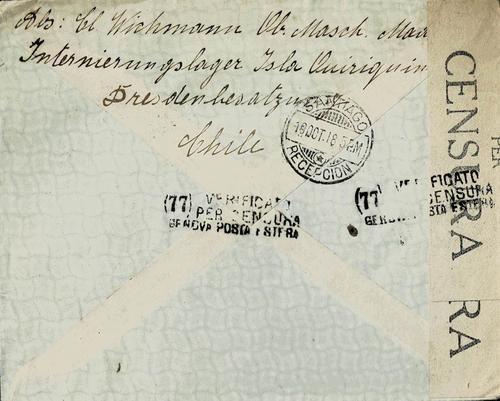 Abs: Cl Wichmann Ob. Masch. Maa
Internierungslager Isla Quiriquin
Dresdenbesatzung
Chile
SANTIAGO
18 OCT 18 5 PM
RECEPCION
(77) VERIFICATO
PER CENSURA
GENOVA POSTA ESTERA
(77) VERIFICATO
PER CENSURA
GENOVA POSTA ESTERA
CENSURA
PER
RA